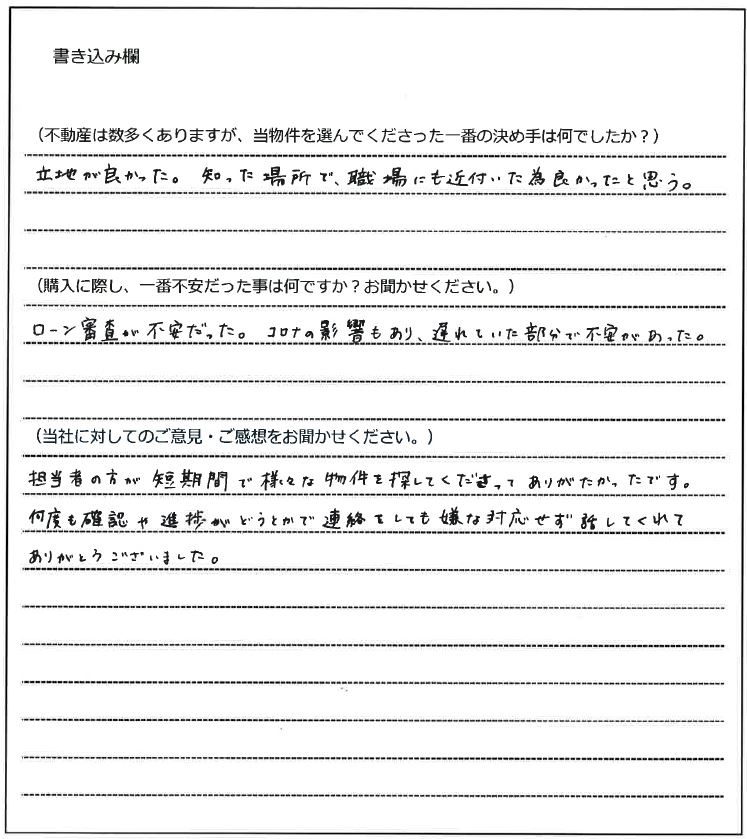 書き込み欄
(不動産は数多くありますが、当物件を選んでくださった一番の決め手は何でしたか?)
立地が良かった。知った場所で、職場にも近付いた為良かったと思う。
(購入に際し、一番不安だった事は何ですか?お聞かせください。)
ローン審査が不安だった。コロナの影響もあり、遅れていた部分で不安があった。
(当社に対してのご意見・ご感想をお聞かせください。)
担当者の方が短期間で様々な物件を探してくださってありがたかったです。
何度も確認や進捗がどうとかで連絡をしても嫌な対応せず話してくれて
ありがとうございました。